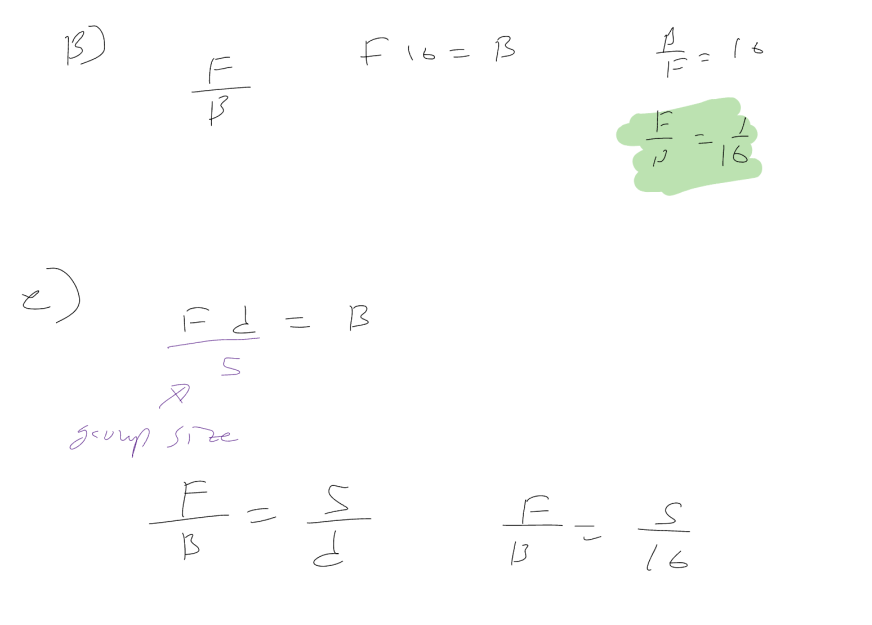 B)
F/B
F 16 = B
B/F = 16
F/B = 1/16
e)
F d / 5 = B
group size
F/B = 5/d
F/B = 5/16